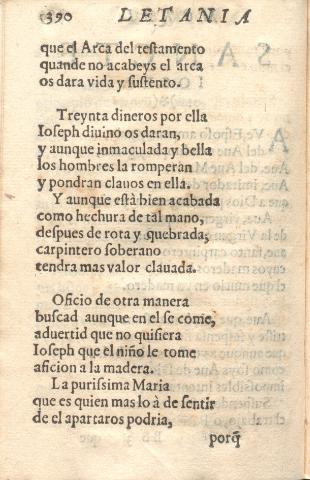 390 LETANIA
que el Arca del testamento
quande no acabeys el arca
os dara vida y sustento.
Treynta dineros por ella
Ioseph diuino os daran,
y aunque inmaculada y bella
los hombres la romperan
y pondran clauos en ella.
Y aunque està bien acabada
como hechura de tal mano,
despues de rota y quebrada,
carpintero soberano
tendra mas valor clauada.
Oficio de otra manera
buscad aunque en el se come,
aduertid que no quisiera
Ioseph que el niño le tome
aficion a la madera.
La purissima Maria
que es quien mas lo à de sentir
de el apartaros podria,
porq̃